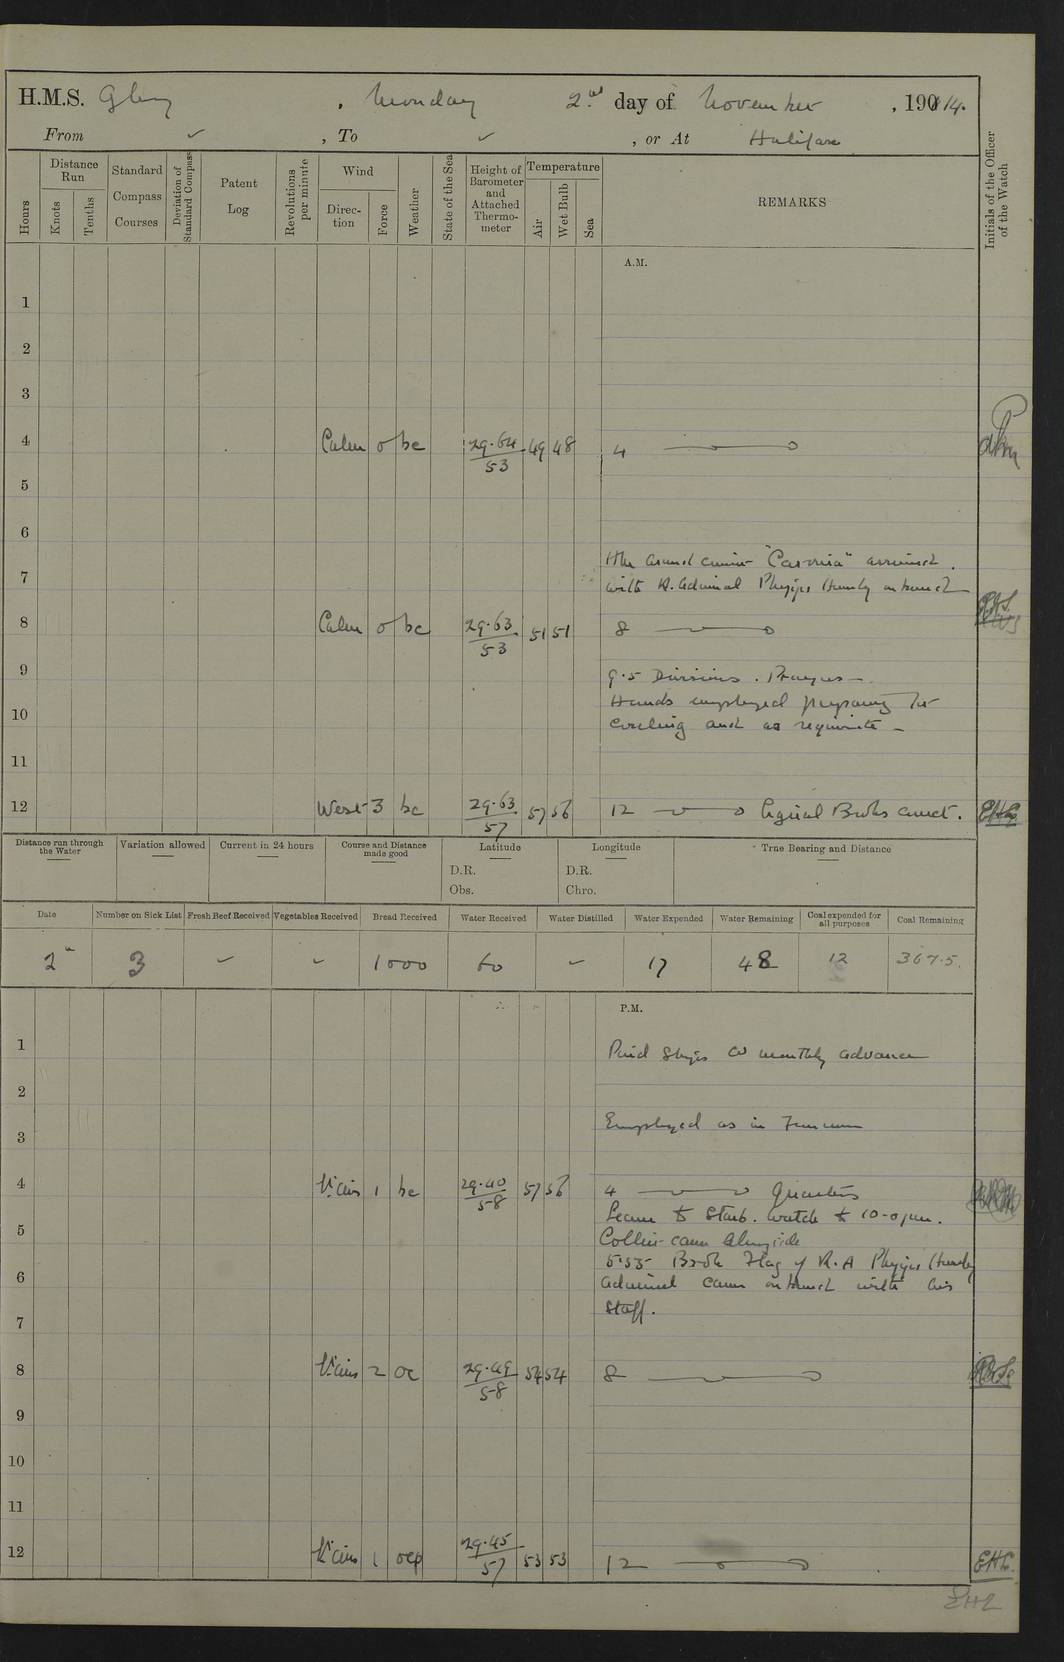 H.M.S. Glory , Monday 2nd day of November , 1914.
From ✓ , To ✓ , or At Halifax
Hours
Distance Run
Knots
Tenths
Standard Compass Courses
Deviation of Standard Compass
Patent Log
Revolutions per minute
Wind
Direction
Force
Weather
State of the Sea
Height of Barometer and Attached Thermometer
Temperature
Air
Wet Bulb
Sea
REMARKS
Initials of the Officer of the Watch
A.M.
1
2
3
4 Calm 0 bc 29.64 53 49 48 4
5
6
armed cruiser "Caronia" arrived.
7 with R. Admiral Phipps Hornby on board
8 Calm 0 bc 29.63 53 51 51 8
9 9.5 Divisions. Prayers –
Hands employed preparing for
10 coaling and as requisite –
11
12 West 3 bc 29.63 57 57 56 12 Signal Books correct. EHG
Distance run through the Water
Variation allowed
Current in 24 hours
Course and Distance made good
Latitude
D.R.
Obs.
Longitude
D.R.
Chro.
True Bearing and Distance
Date
Number on Sick List
Fresh Beef Received
Vegetables Received
Bread Received
Water Received
Water Distilled
Water Expended
Water Remaining
Coal expended for all purposes
Coal Remaining
2nd 3 – – 1000 60 – 17 48 12 367.5.
P.M.
1 Paid Ship's Co monthly advance
2
3 Employed as in Forenoon
4 V'airs 1 bc 29.40 58 57 56 4 Quarters
Leave to Starb. watch to 10-0 pm.
5 Collier came alongside
5.55 Broke Flag of R.A Phipps Hornby
6 Admiral came on board with his
Staff.
7
8 V'airs 2 oc 29.49 58 54 54 8
9
10
11
12 V'airs 1 ocp 29.45 57 53 53 12